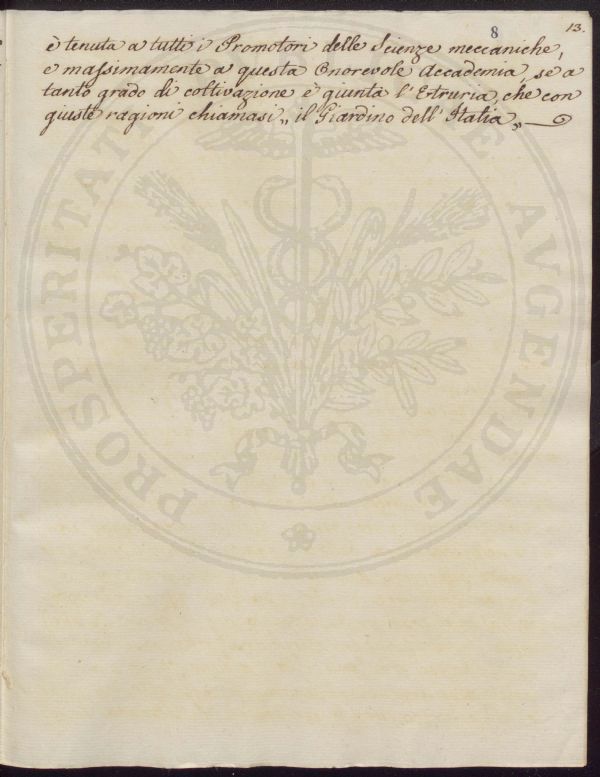 8
13.
è tenuta a tutti i Promotori delle Scienze meccaniche,
e massimamente a questa Onorevole Accademia, se a
tanto grado di coltivazione è giunta l'Etruria, che con
giuste ragioni chiamasi „ il Giardino dell'Italia „
PROSPERITATI PUBLICAE AVGENDAE